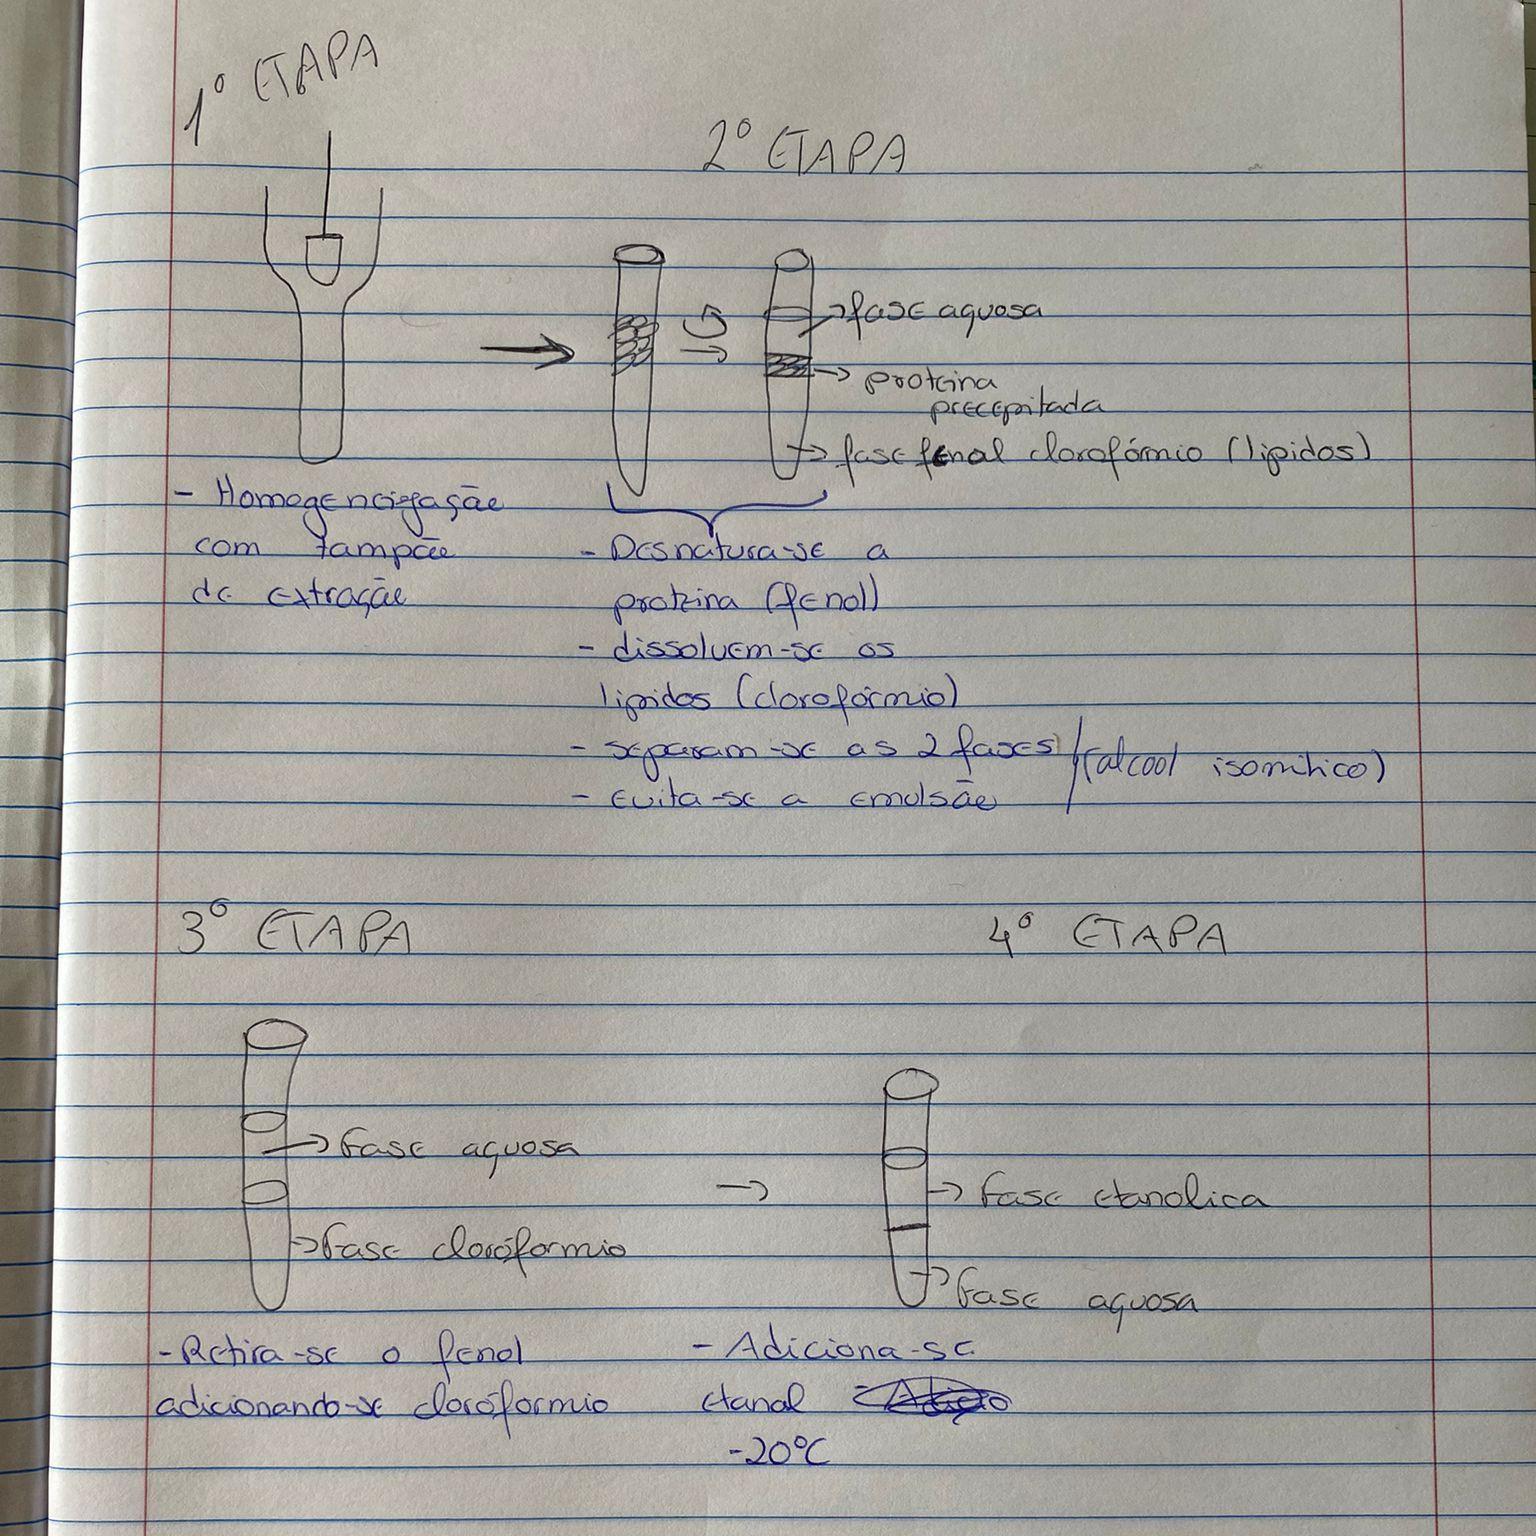 1º ETAPA
2º ETAPA
fase aquosa
proteina
precepitada
fase fenal clorofórmio (lipidos)
- Homogeneização
com tampão
de extração
- Desnatura-se a
proteina (fenol)
- dissoluem-se os
lipidos (clorofórmio)
- separam-se as 2 fases
- evita-se a emulsão
(alcool isomilico)
3º ETAPA
4º ETAPA
fase aquosa
fase cloroformio
fase etanolica
fase aquosa
- Retira-se o fenol
adicionando-se cloroformio
- Adiciona-se
etanal
-20ºC